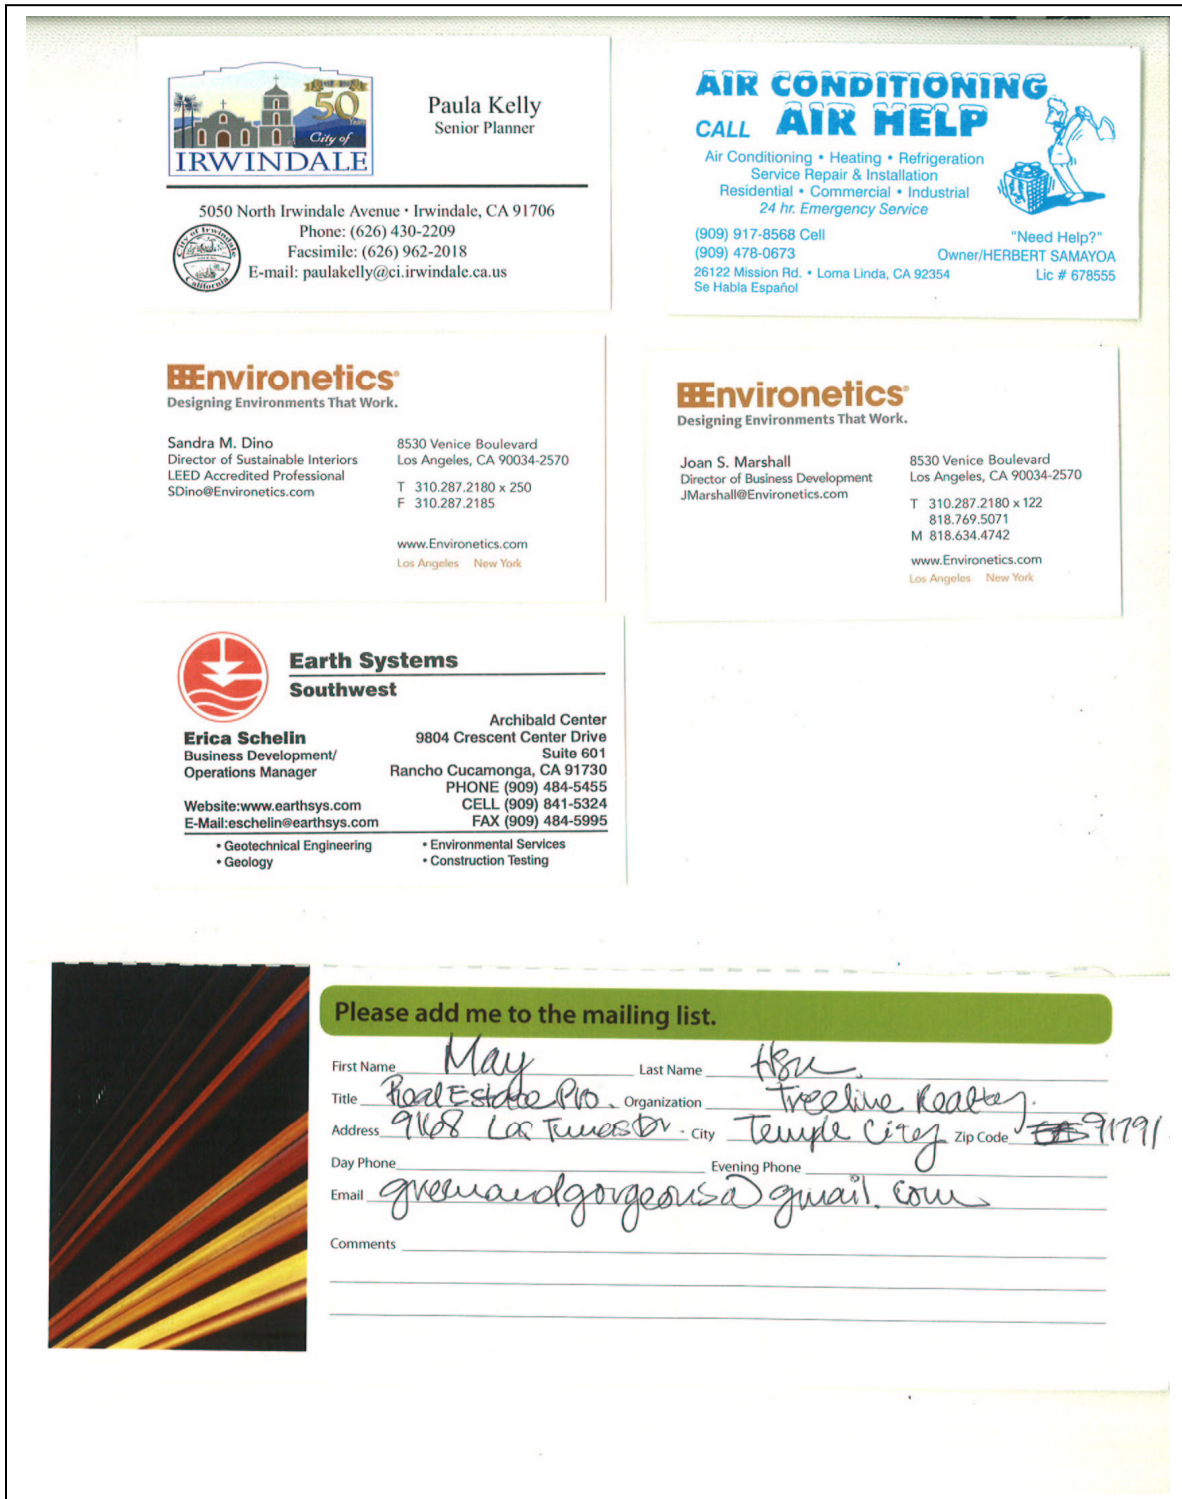 50
Years
City of
IRWINDALE
Paula Kelly
Senior Planner
5050 North Irwindale Avenue • Irwindale, CA 91706
Phone: (626) 430-2209
Facsimile: (626) 962-2018
E-mail: paulakelly@ci.irwindale.ca.us
City of Irwindale
California
AIR CONDITIONING
CALL AIR HELP
Air Conditioning • Heating • Refrigeration
Service Repair & Installation
Residential • Commercial • Industrial
24 hr. Emergency Service
(909) 917-8568 Cell
"Need Help?"
(909) 478-0673
Owner/HERBERT SAMAYOA
26122 Mission Rd. • Loma Linda, CA 92354
Lic # 678555
Se Habla Español
Environetics®
Designing Environments That Work.
Sandra M. Dino
Director of Sustainable Interiors
LEED Accredited Professional
SDino@Environetics.com
8530 Venice Boulevard
Los Angeles, CA 90034-2570
T 310.287.2180 x 250
F 310.287.2185
www.Environetics.com
Los Angeles New York
Environetics®
Designing Environments That Work.
Joan S. Marshall
Director of Business Development
JMarshall@Environetics.com
8530 Venice Boulevard
Los Angeles, CA 90034-2570
T 310.287.2180 x 122
818.769.5071
M 818.634.4742
www.Environetics.com
Los Angeles New York
Earth Systems
Southwest
Erica Schelin
Business Development/
Operations Manager
Website:www.earthsys.com
E-Mail:eschelin@earthsys.com
Archibald Center
9804 Crescent Center Drive
Suite 601
Rancho Cucamonga, CA 91730
PHONE (909) 484-5455
CELL (909) 841-5324
FAX (909) 484-5995
• Geotechnical Engineering
• Geology
• Environmental Services
• Construction Testing
Please add me to the mailing list.
First Name May Last Name Hsu
Title Real Estate Pro. Organization Treeline Realty.
Address 9168 Las Tunas Dr. City Temple City Zip Code 91791
Day Phone Evening Phone
Email greenandgorgeous@gmail.com
Comments